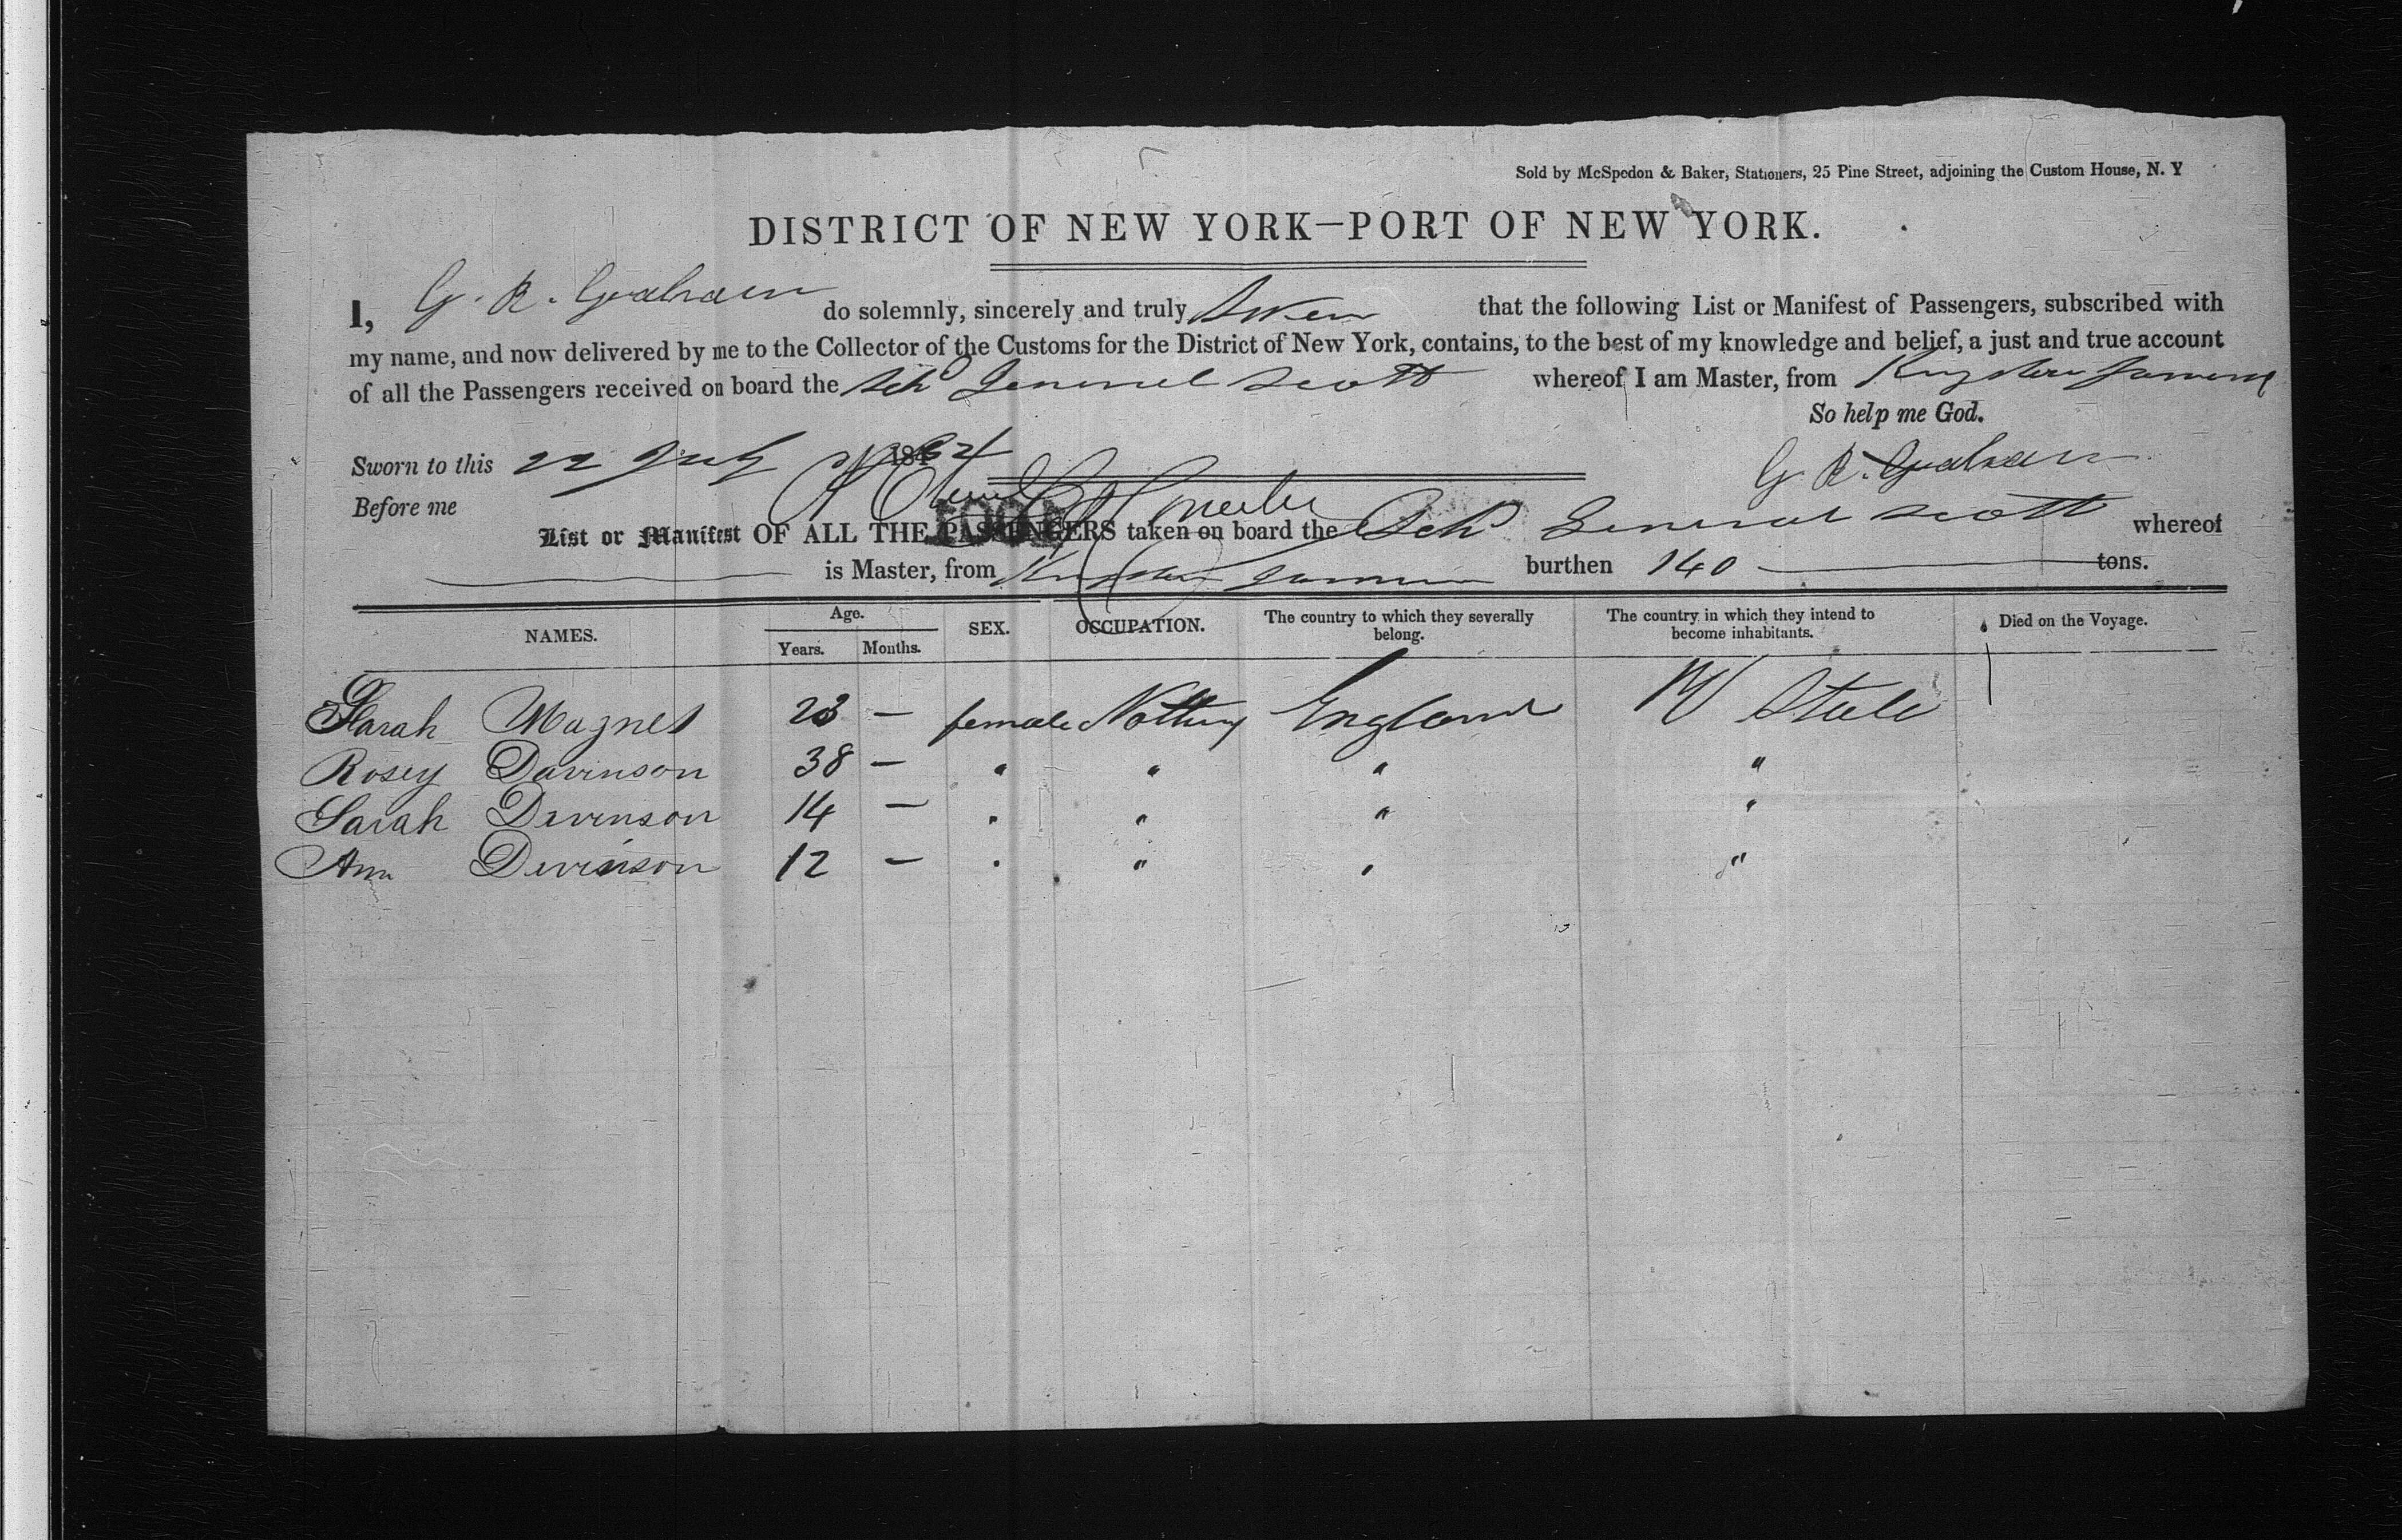 Sold by McSpedon & Baker, Stationers, 25 Pine Street, adjoining the Custom House, N. Y
DISTRICT OF NEW YORK—PORT OF NEW YORK.
I, G. R. Graham do solemnly, sincerely and truly Swear that the following List or Manifest of Passengers, subscribed with
my name, and now delivered by me to the Collector of the Customs for the District of New York, contains, to the best of my knowledge and belief, a just and true account
of all the Passengers received on board the Schr General Scott whereof I am Master, from Kingston Jamaica
So help me God.
Sworn to this 22 July 18 G R. Graham
Before me
List or Manifest OF ALL THE PASSENGERS taken on board the Schr General Scott whereof
is Master, from Kingston Jamaica burthen 140 tons.
NAMES. Age. Years. Months. SEX. OCCUPATION. The country to which they severally belong. The country in which they intend to become inhabitants. Died on the Voyage.
Sarah Magnes 23 — female Nothing England
Rosey Davinson 38 — " " " "
Sarah Davinson 14 — " " " "
Ann Davinson 12 — " " " "